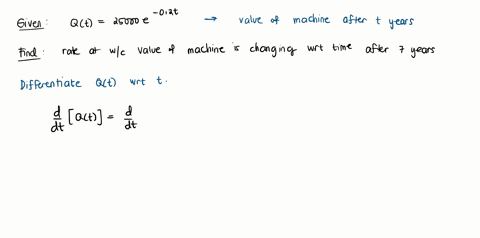 Given: Q(t) = 25000 e^-0.2t → value of machine after t years
Find: rate at w/c value of machine is changing wrt time after 7 years
Differentiate Q(t) wrt t.
d/dt [Q(t)] = d/dt